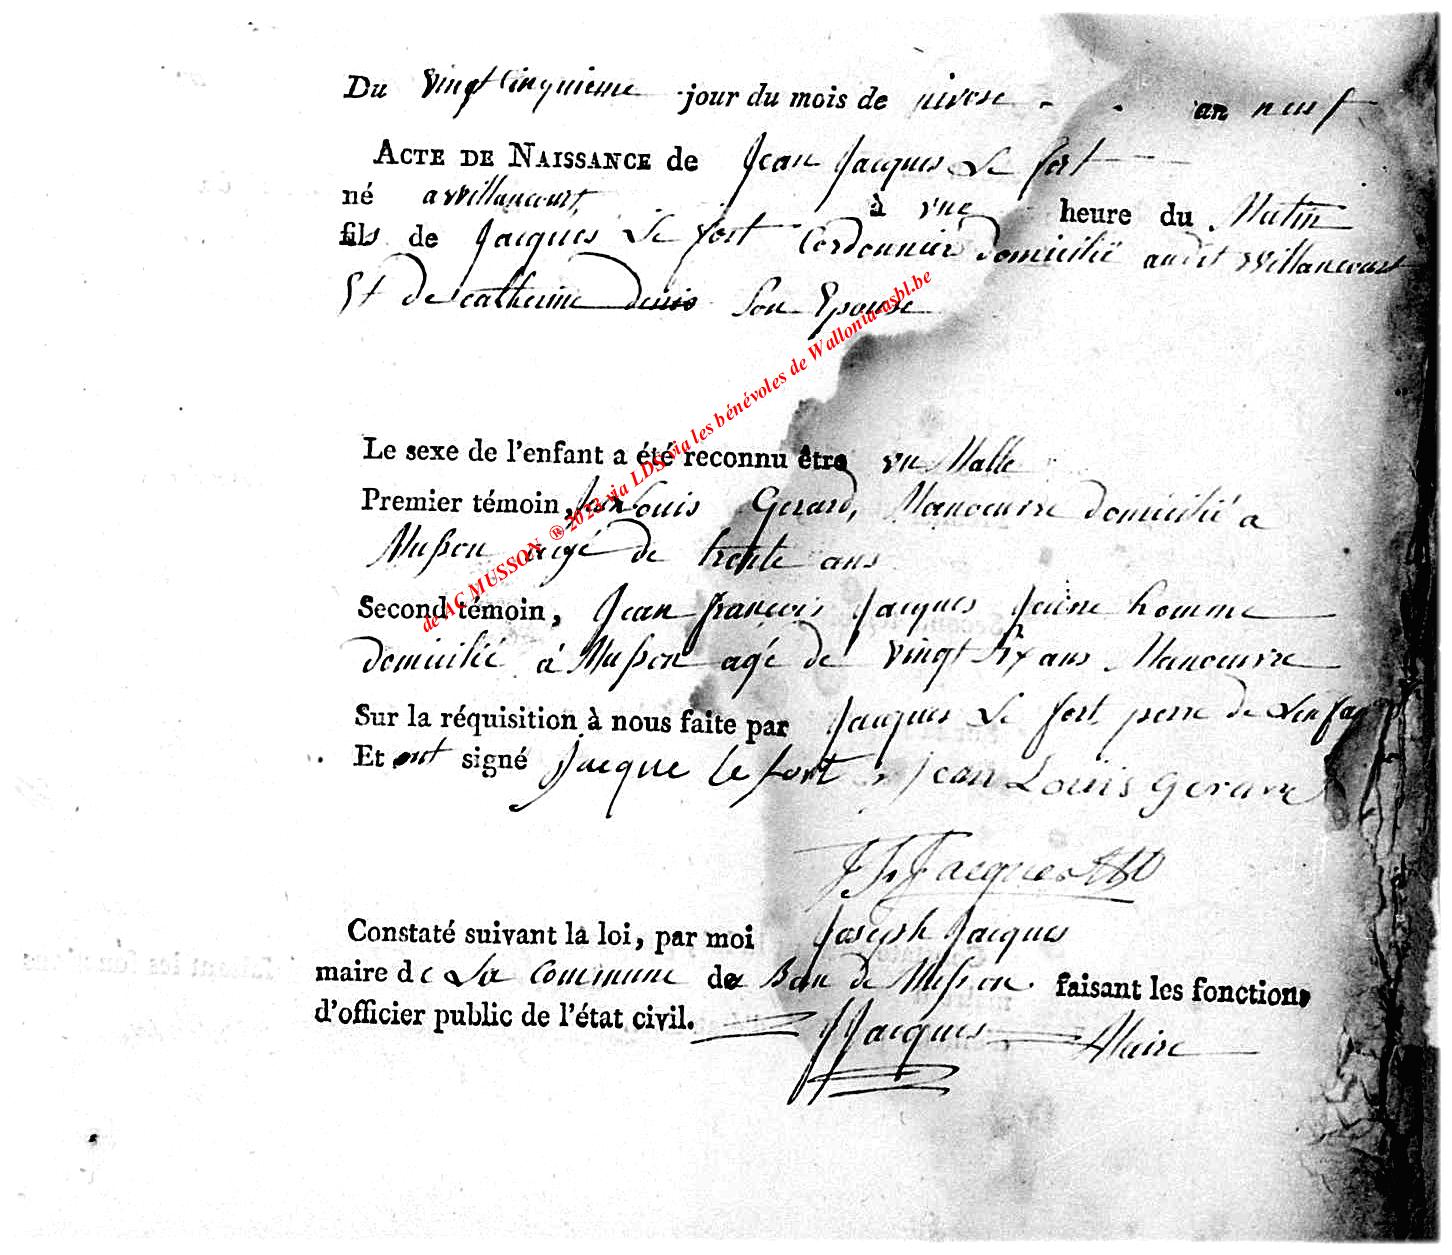 Du vingt cinquieme jour du mois de nivose - - an neuf
ACTE DE NAISSANCE de Jean Jacques Le fort
né a Willancourt à une heure du Matin
fils de Jacques Le fort Cordonnier domicilié audit Willancourt
Et de catherine denis Son Epouse
Le sexe de l'enfant a été reconnu être un Malle
Premier témoin, Jean Louis Gerard, Manoeuvre domicilié a
Musson agé de trente ans
Second témoin, Jean françois Jacques Jeune homme
domicilié á Musson agé de vingt six ans Manoeuvre
Sur la réquisition à nous faite par Jacques Le fort perre de Lenfant
Et ont signé Jacque le fort, jean Louis gerard
J f Jacques
Constaté suivant la loi, par moi Joseph Jacques
maire de La Commune de Ban de Musson faisant les fonctions
d'officier public de l'état civil. J Jacques Maire
de AC MUSSON ® 2023 via LDS via les bénévoles de Wallonia-asbl.be